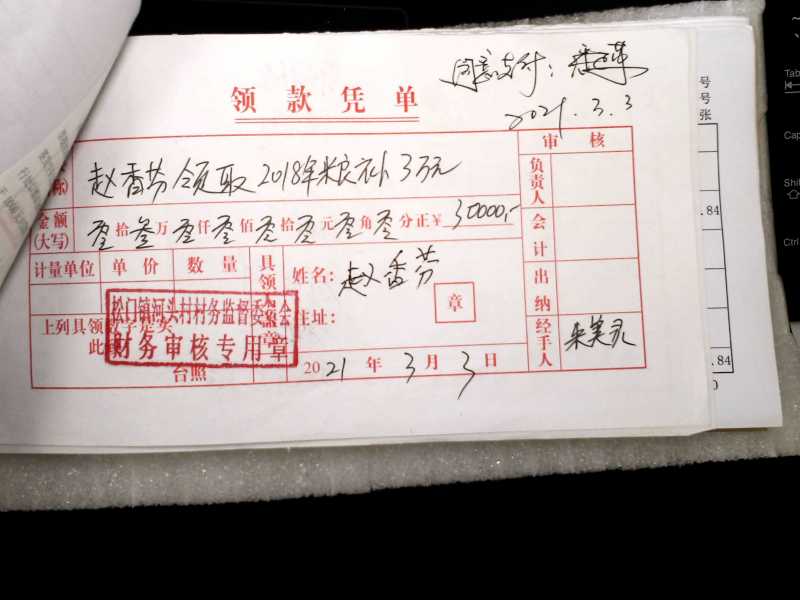 同意支付：
2021.3.3
领款凭单
审核
赵香芬领取2018年粮补3万元
负责人
金额(大写) 零拾叁万零仟零佰零拾零元零角零分正¥ 30000,-
会计
计量单位 单价 数量 具领人盖章 姓名：赵香芬
章
出纳
上列具领数字是实
住址：
此
台照
松门镇河头村村务监督委员会
财务审核专用章
2021年3月3日
经手人 朱美灵
号
号
张
.84
.84
0
Tab
Cap
Shif
Ctrl